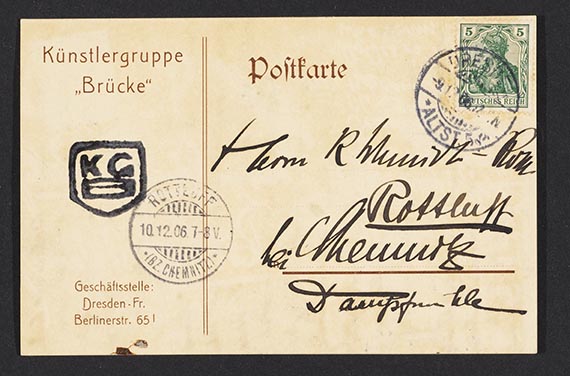 Künstlergruppe
„Brücke"
Postkarte
5 5
DEUTSCHES REICH
DRESDEN
ALTST.
KG
ROTTLUFF
10.12.06.7-8V.
*(BZ.CHEMNITZ)*
Herrn R Schmidt-
Rottluff
bei Chemnitz
Dampfmühle
Geschäftsstelle:
Dresden-Fr.
Berlinerstr. 65 I